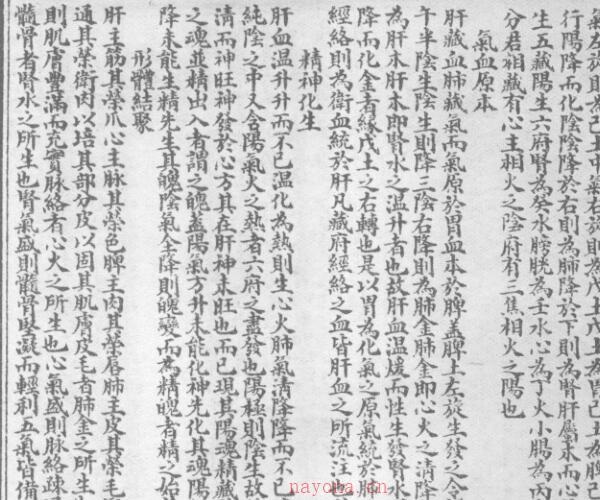 氣左旋則為己土中氣右旋則為戊土戊土為胃己土為脾己
行陽降而化陰陰降於右則為肺降於下則為腎肝屬木而心
生五藏陽生六府腎為癸水膀胱為壬水心為丁火小腸為丙
分君相藏有心主相火之陰府有三焦相火之陽也
氣血原本
肝藏血肺藏氣而氣原於胃血本於脾蓋脾土左旋生發之令
午半陰生陰生則降三陰右降則為肺金肺金即心火之清降
為肝木肝木即腎水之温升者也故肝血温煖而性生發腎水
降而化金者緣戊土之右轉也是以胃為化氣之原氣統於
經絡則為衛血統於肝凡藏府經絡之血皆肝血之所流注
精神化生
肝血温升升而不已温化為熱則生心火肺氣清降降而不已
純陰之中又含陽氣火之熱者六府之盡發也陽極則陰生故
清而神旺神發於心方其在肝神未旺也而已現其陽魂精藏
之魂並精出入者謂之魄蓋陽氣方升未能化神先化其魂陽
降未能生精先生其魄陰氣全降則魄變而為精魄者精之始
形體結聚
肝主筋其榮爪心主脉其榮色脾主肉其榮唇肺主皮其榮毛
通其榮衛肉以培其部分皮以固其肌膚皮毛者肺金之所生
則肌膚豐滿而充實脉絡者心火之所生也心氣盛則脉絡疎
髓骨者腎水之所生也腎氣盛則髓骨堅凝而輕利五氣皆備
nayona.cn